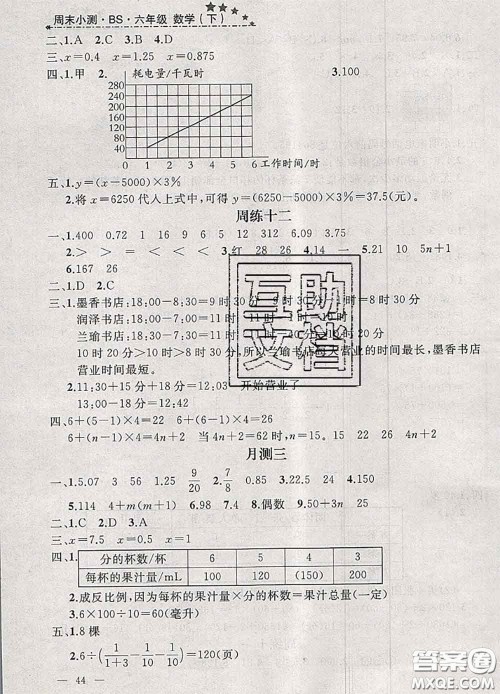 周末小测·BS·六年级 数学(下)
二、1.A 2.C 3.B 4.D
三、x=0.4 x=1.25 x=0.875
四、1.甲 2. 耗电量/千瓦时 3.100
280
240
200
160
120
80
40
0 1 2 3 4 5 6 工作时间/时
五、1.y=(x-5000)×3%
2.将x=6250代人上式中,可得y=(6250-5000)×3%=37.5(元)。
周练十二
一、1.400 0.72 1 16 9 6 15 12 312 0.09
2.> > = < < < 3.红 28 26 4.14 一 5.21 10 5n+1
6.167 26
二、1.D 2.C
三、1.墨香书店:18:00-8:30=9时30分
润泽书店:18:00-
兰瑜书店:18:30-
10时20分>10时>8时30分,所以兰瑜书店每天营业的时间最长,墨香书店
营业时间最短。
2.11:30+15分+18分=12:03 开始营业了
13:00-18分=12:42
四、6+(5-1)×4=22 6+(6-1)×4=26
6+(n-1)×4=4n+2 当4n+2=62时,n=15 4n+2
月测三
一、1.5.07 3 56 15 9/20 7/8 0.85 2.125 3.22 4.150
5.114 4+m(m+1) 6.98 7.4 8.偶数 9.50+3n 25
二、1.C 2.D 3.A
三、x=7.5 x=0.5 x=1
四、1. 分的杯数/杯 6 5 4 3
每杯的果汁量/mL 100 120 (150) 200
2.成反比例,因为每杯的果汁量×分的杯数=果汁总量(一定)
3.6×100÷10=60(毫升)
五、1.8棵
2.6÷(1/(1+3)-1/10-1/10)=120(页)
— 44 —
互助
文档
答案圈
MXQE.COM